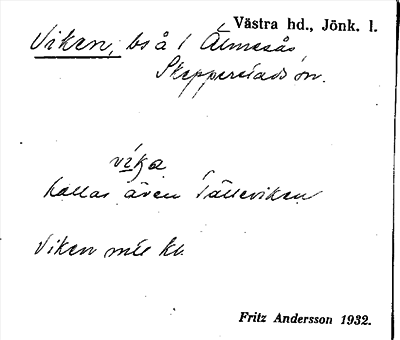 Västra hd., Jönk. l.
Viken, bs å i Älmesås
Skepperstads sn.
vika
kallas även Tälleviken
Viken mtl kv.
Fritz Andersson 1932.